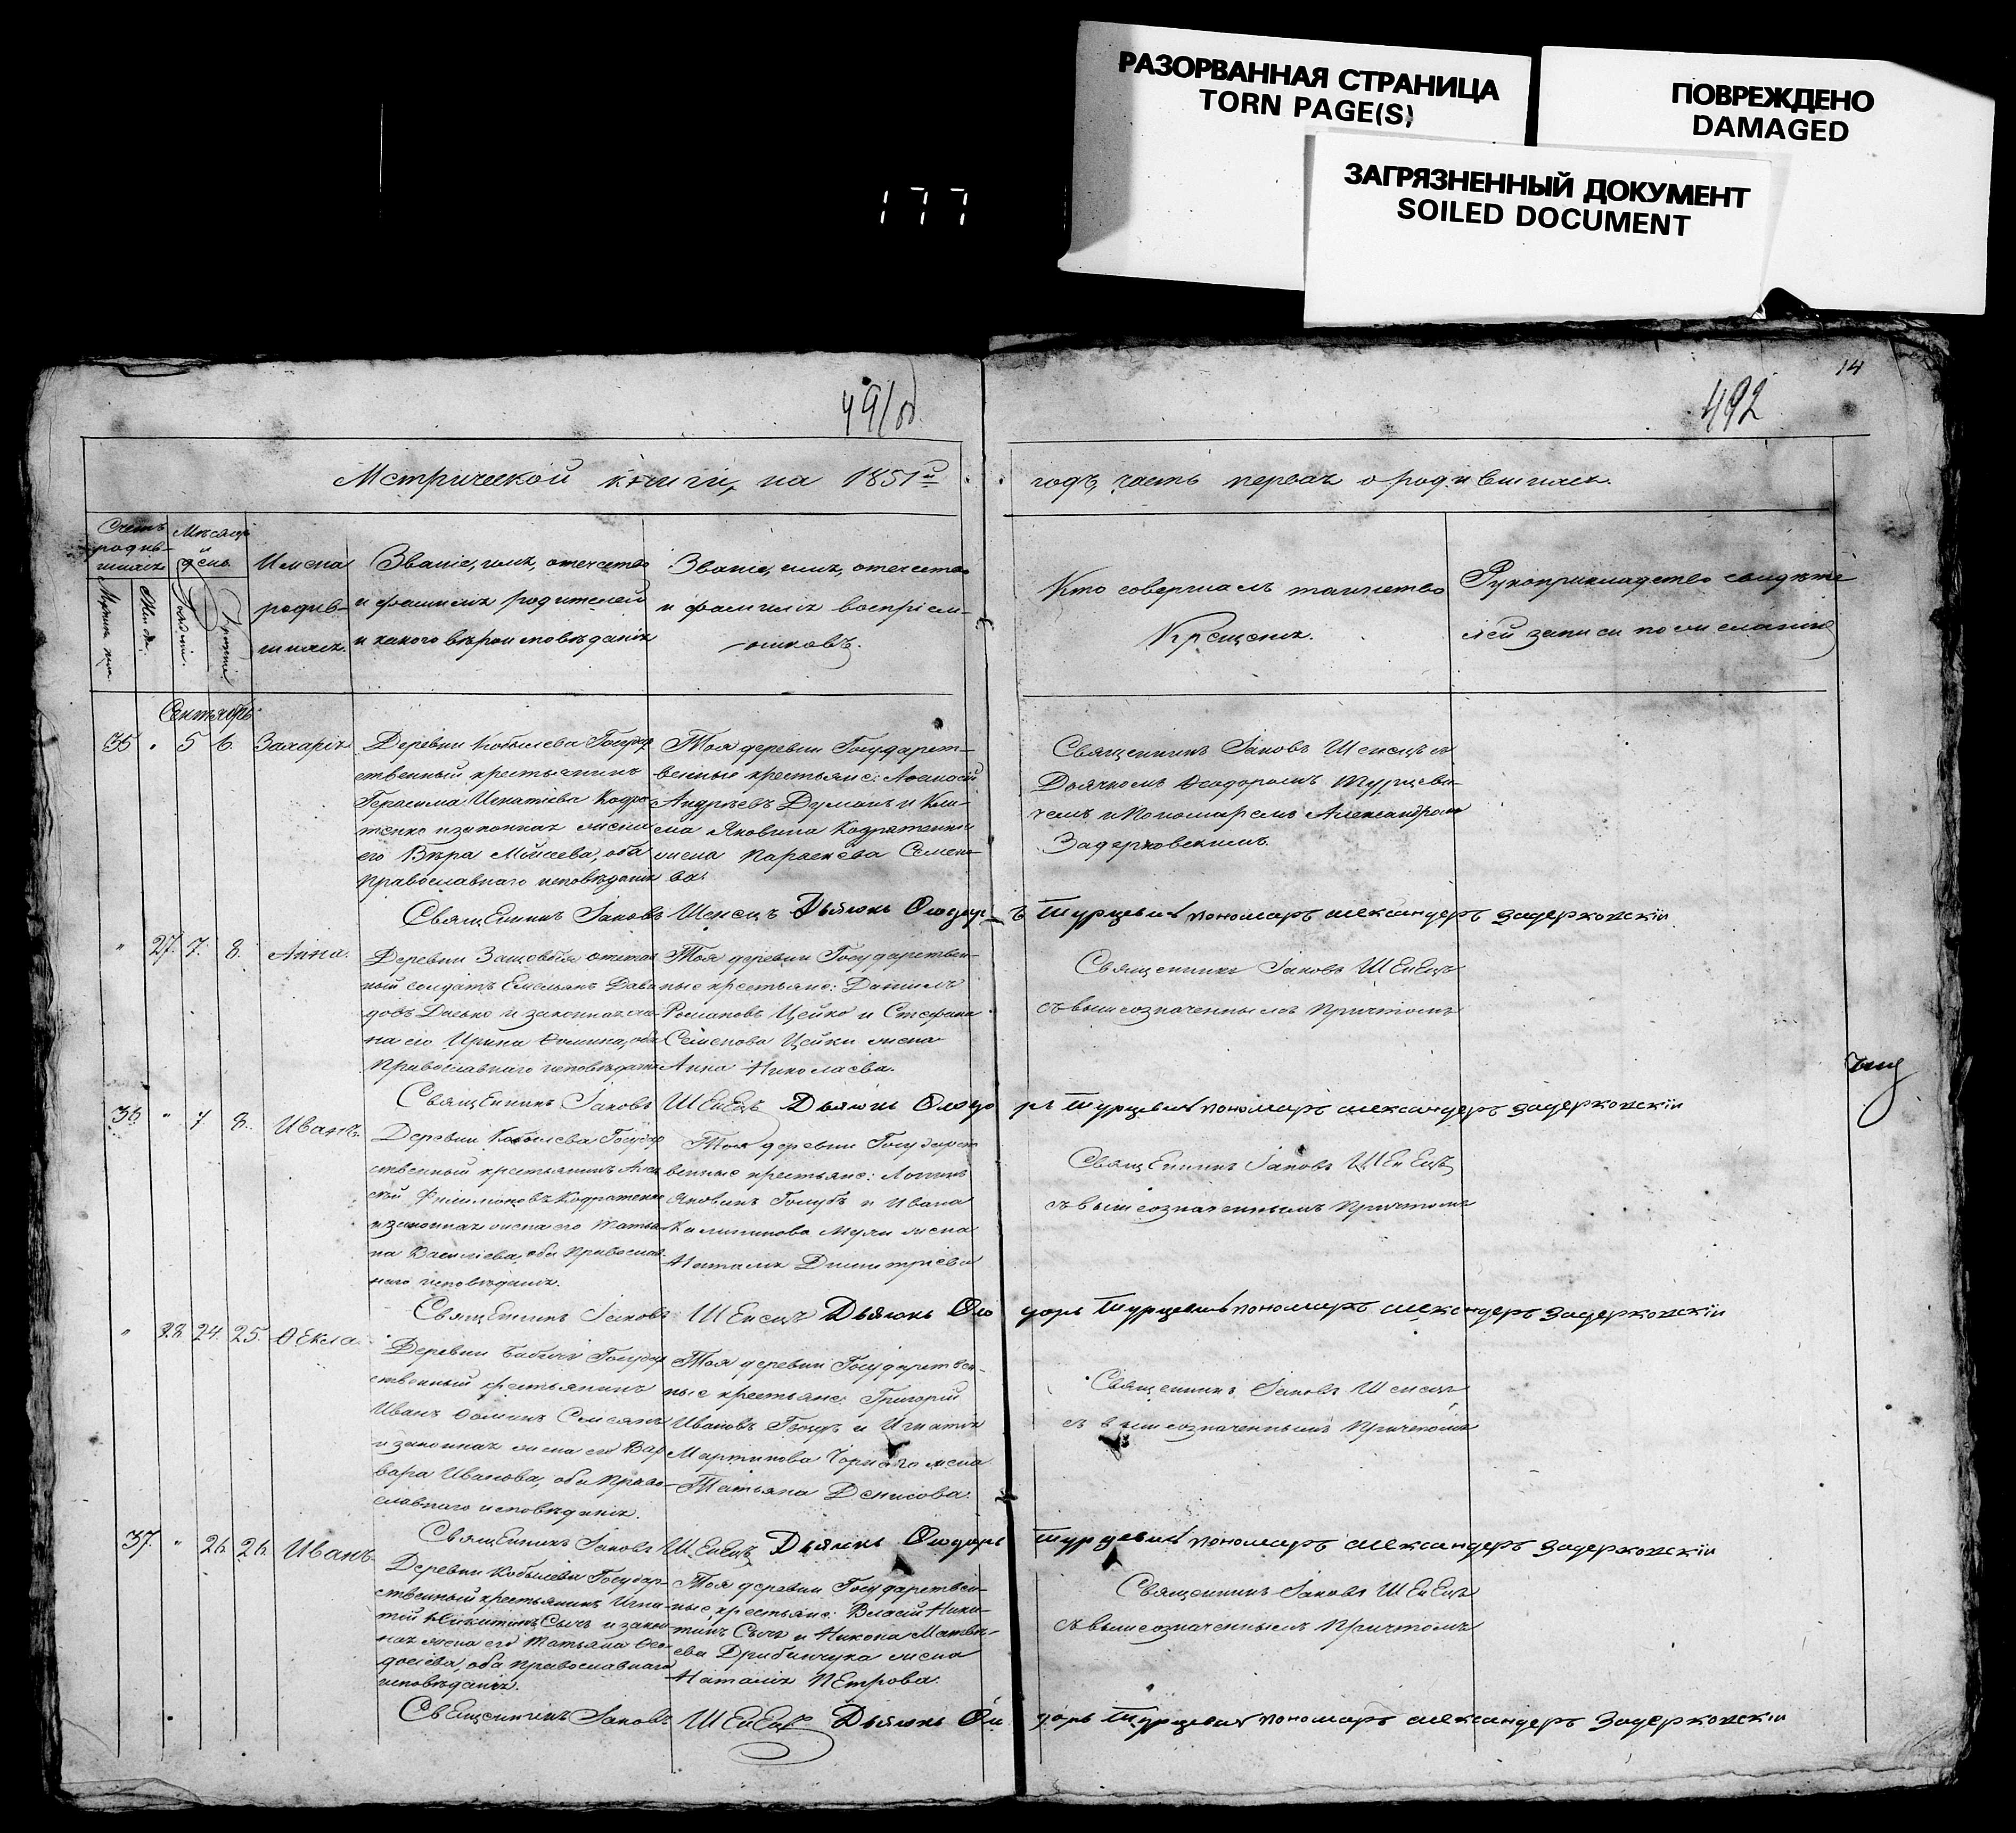 РАЗОРВАННАЯ СТРАНИЦА
TORN PAGE(S)
ПОВРЕЖДЕНО
DAMAGED
ЗАГРЯЗНЕННЫЙ ДОКУМЕНТ
SOILED DOCUMENT
177
14
491об
492
Метрической книги, на 1851й
годъ, часть первая о родившихся.
Счетъ родив-
шихся
Мѣсяцъ
и
день
Женска.
Имена
родив-
шихся.
Званіе, имя, отечество
и фамилія родителей
и какого вѣроисповѣданія
Званіе, имя, отечество
и фамилія воспріем-
никовъ.
Кто совершалъ таинство
Крещенія.
Рукоприкладство свидѣте
лей записи по желанію
Сентябрь
35 " 5 6. Захарія
Деревни Кобылева Государ
ственный крестьянинъ
Герасима Игнатіева Кодра
тенко и законная жена
его Вѣра Моисеева, оба
Православнаго исповѣданія
Тоя деревни Государст-
венные крестьяне: Афанасій
Андрѣевъ Думанъ и Кли-
ма Яковина Кодратенка
жена Параскева Семено-
ва.
Священникъ Іаковъ Шенецъ съ
Дьячкомъ Ѳеодоромъ Турцеви-
чемъ и Пономаремъ Александромъ
Задерковскимъ
Священникъ Іаковъ Шенецъ Дьячокъ Ѳеодоръ Турцевич пономаръ александеръ задерковскій
" 27. 7. 8. Анна.
Деревни отстав
ной солдатъ Емельянъ Дави
довъ и законная же-
на его Ирина Ѳомина, оба
Православнаго исповѣданія
Тоя деревни Государствен-
ные крестьяне: Даніилъ
Романовъ Цейко и Стефана
Семенова Цейки жена
Анна Николаева.
Священникъ Іаковъ Шенецъ
съ вышеозначеннымъ Причтомъ
Священникъ Іаковъ Шенецъ Дьячокъ Ѳеодоръ Турцевич пономаръ александеръ задерковскій
36 " 7 8. Иванъ.
Деревни Кобылева Государ
ственный крестьянинъ Алек
сѣй Филимоновъ Кодратенко
и законная жена его Татья
на Василіева, оба Православ
наго исповѣданія.
Тоя деревни Государст
венные крестьяне: Логинъ
Яковинъ Голубъ и Ивана
Калиникова жена
Наталія Димитріева
Священникъ Іаковъ Шенецъ
съ вышеозначеннымъ Причтомъ
Священникъ Іаковъ Шенецъ Дьячокъ Ѳеодоръ Турцевич пономаръ александеръ задерковскій
" 28. 24. 25. Ѳекла
Деревни Бабичъ Государ
ственный крестьянинъ
Иванъ Ѳоминъ
и законная жена его Вар
вара Иванова, оба Право-
славнаго исповѣданія.
Тоя деревни Государствен-
ные крестьяне: Григорій
Ивановъ и Игнатія
Мартинова Чорнаго жена
Татьяна Денисова.
Священникъ Іаковъ Шенецъ
съ вышеозначеннымъ Причтомъ
Священникъ Іаковъ Шенецъ Дьячокъ Ѳеодоръ Турцевич пономаръ александеръ задерковскій
37. " 26. 26. Иванъ
Деревни Кобылева Государ-
ственный крестьянинъ Игна-
тій Никитинъ Сычъ и закон
ная жена его Татьяна Ѳео-
досіева, оба Православнаго
исповѣданія.
Тоя деревни Государствен-
ные крестьяне: Власій Ники-
тинъ Сычъ и Никона Матвѣ-
ева Дрибинчука жена
Наталія Петрова.
Священникъ Іаковъ Шенецъ
съ вышеозначеннымъ Причтомъ
Священникъ Іаковъ Шенецъ Дьячокъ Ѳеодоръ Турцевич пономаръ александеръ Задерковскій